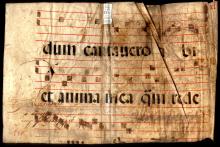 dum cantauero bi
et anima mea rede